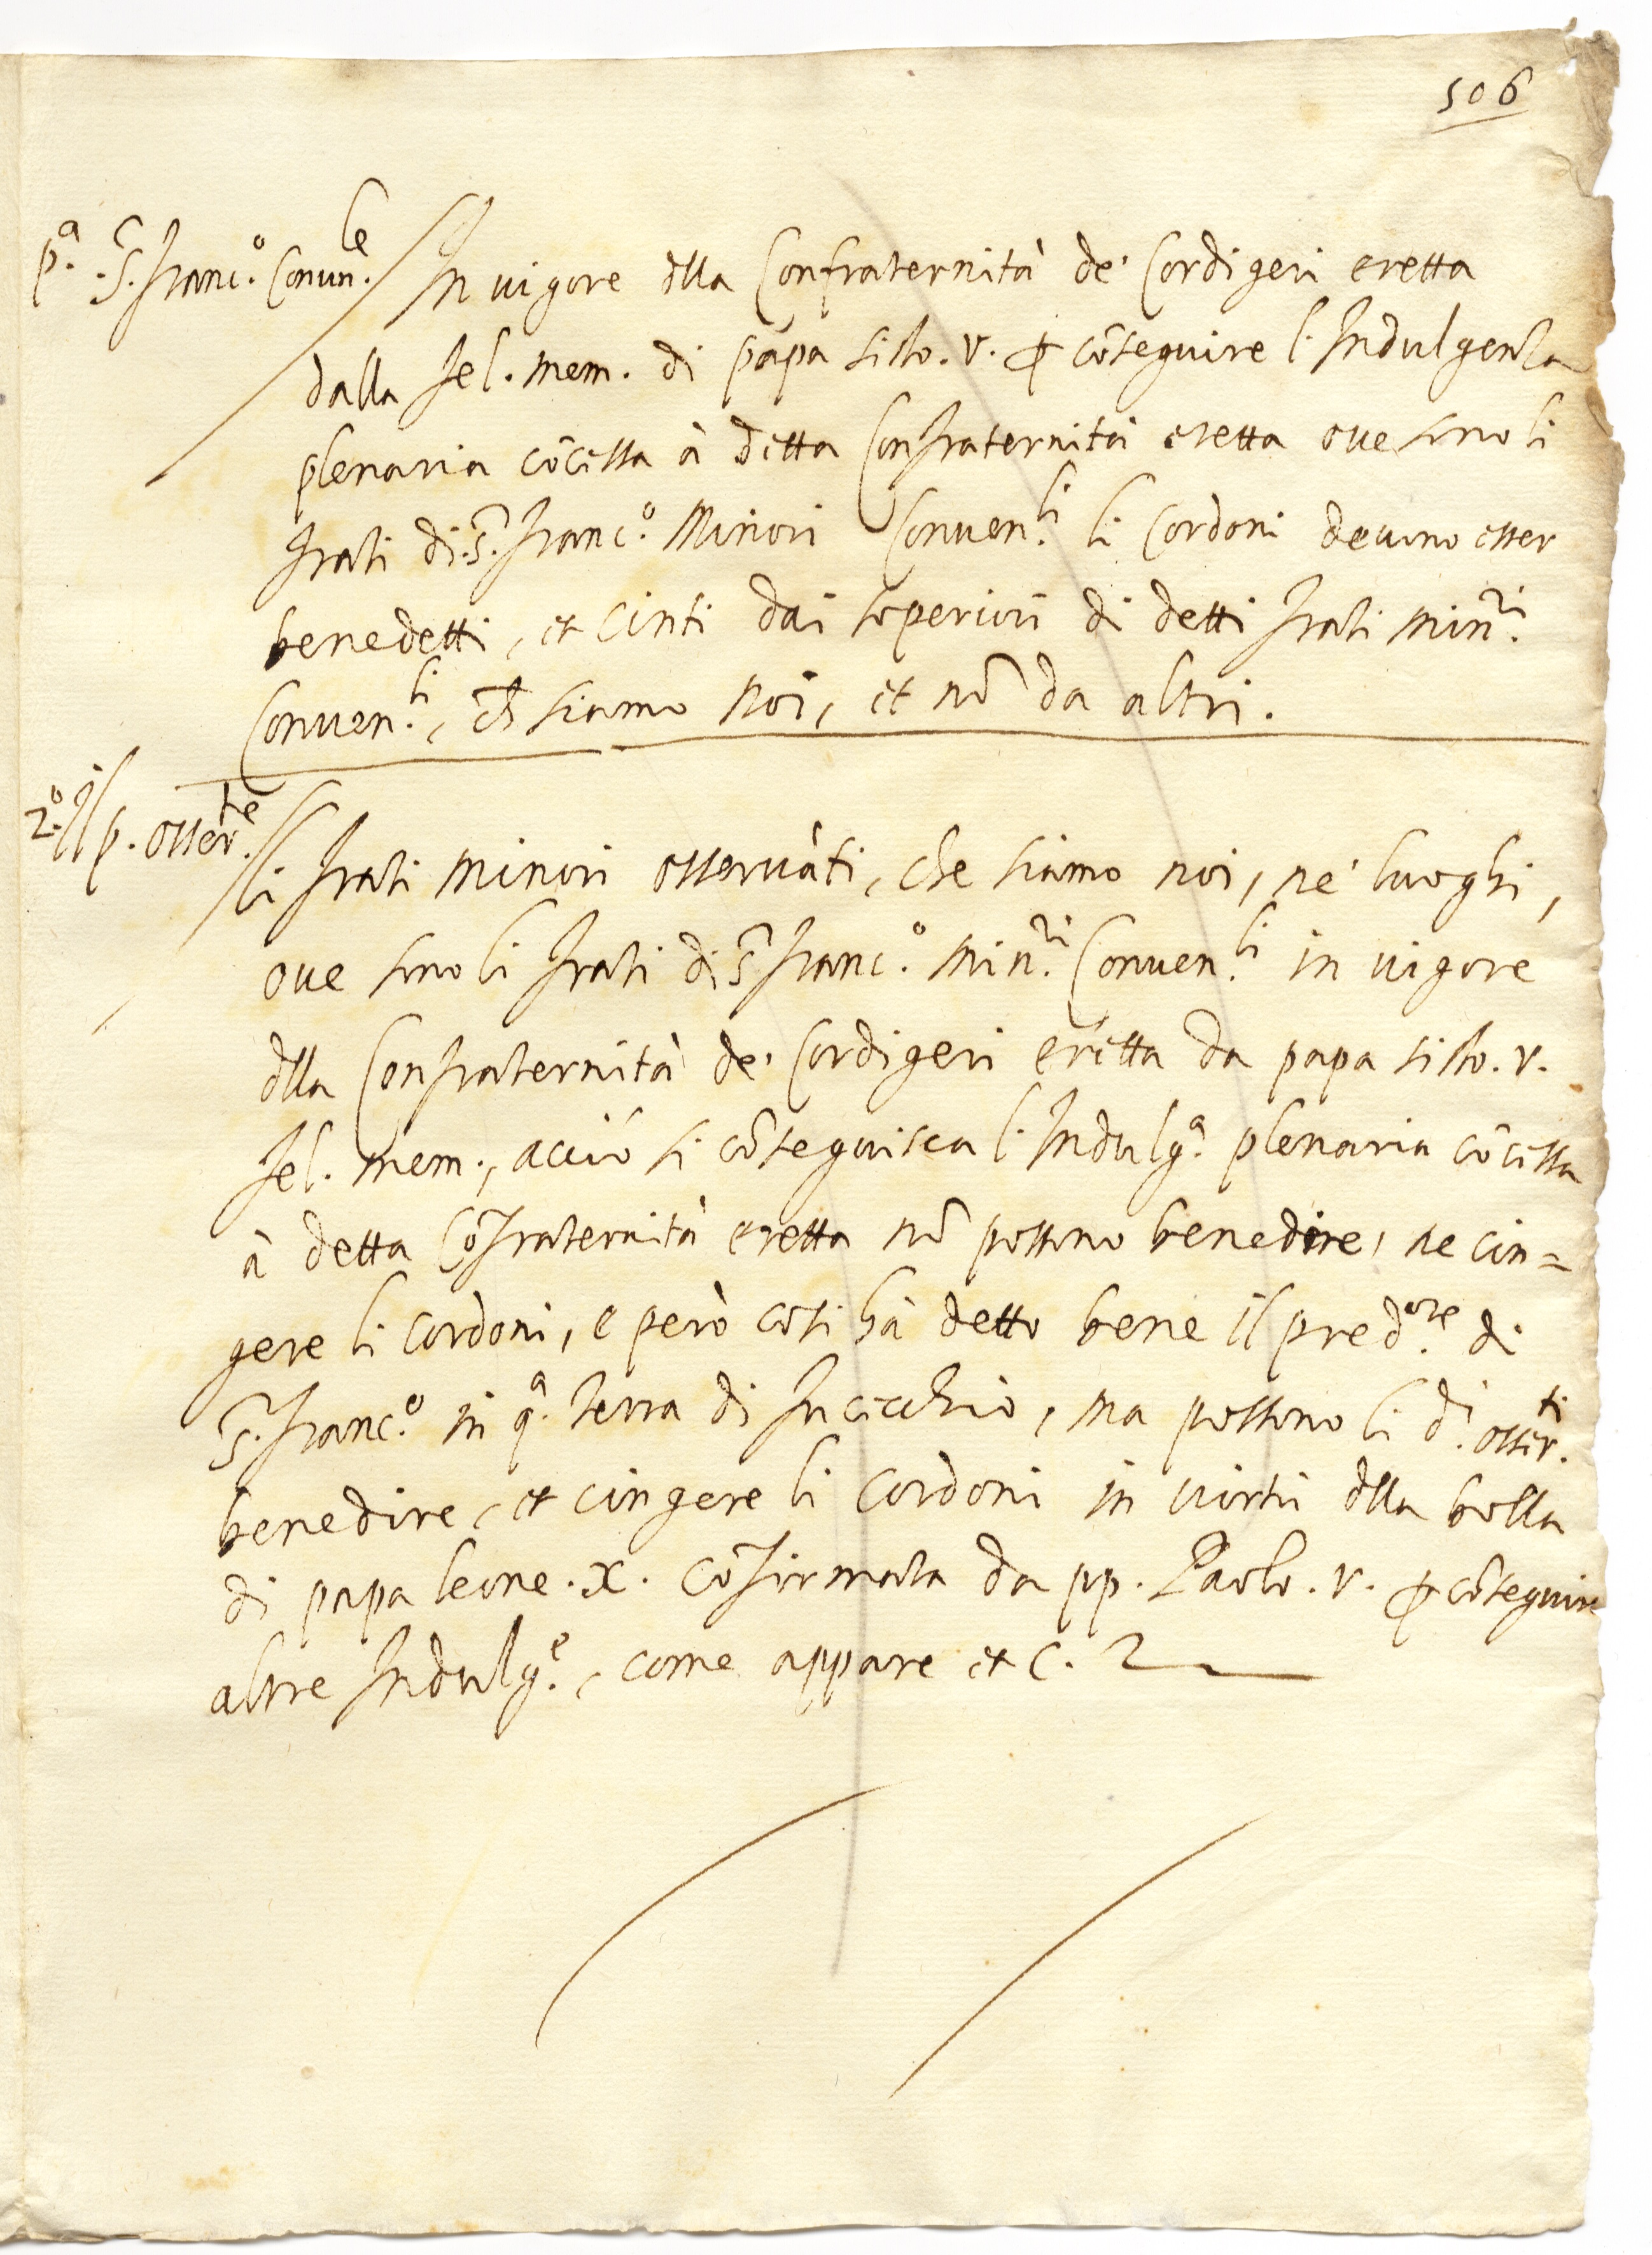 506
pª. S. Franc.º Conuen.le In uigore dlla Confraternità de' Cordigeri eretta
dalla fel. mem. di papa sisto. v. ꝑ cõseguire l'Indulgenza
plenaria cõcessa à detta Confraternità eretta oue sono li
frati di .S. Franc.º Minori Conuen.li li Cordoni deuono esser
benedetti, et cinti dai superiori di detti frati min.ri
Conuen.li, ch̃ siamo noi, et nõ da altri.
2.º Il p. osser.te li frati minori osseruãti, che siamo noi, ne' luoghi,
oue sono li frati di S. Franc.º min.ri Conuen.li in uigore
dlla Confraternità de' Cordigeri eretta da papa sisto. v.
fel. mem., acciò si cõseguisca l'Indulg.ª plenaria cõcessa
à detta Cõfraternità eretta nõ possono benedire, ne cin=
gere li cordoni, e però cosi hà detto bene il pred.ore di
S. Franc.º in q.ª terra di Fucecchio, ma possono li d.i osser.ti
benedire, et cingere li cordoni in uirtù dlla bolla
di papa leone .X. cõfirmata da pp. Paolo .v. ꝑ cõseguire
altre Indulg.e, come appare et c.